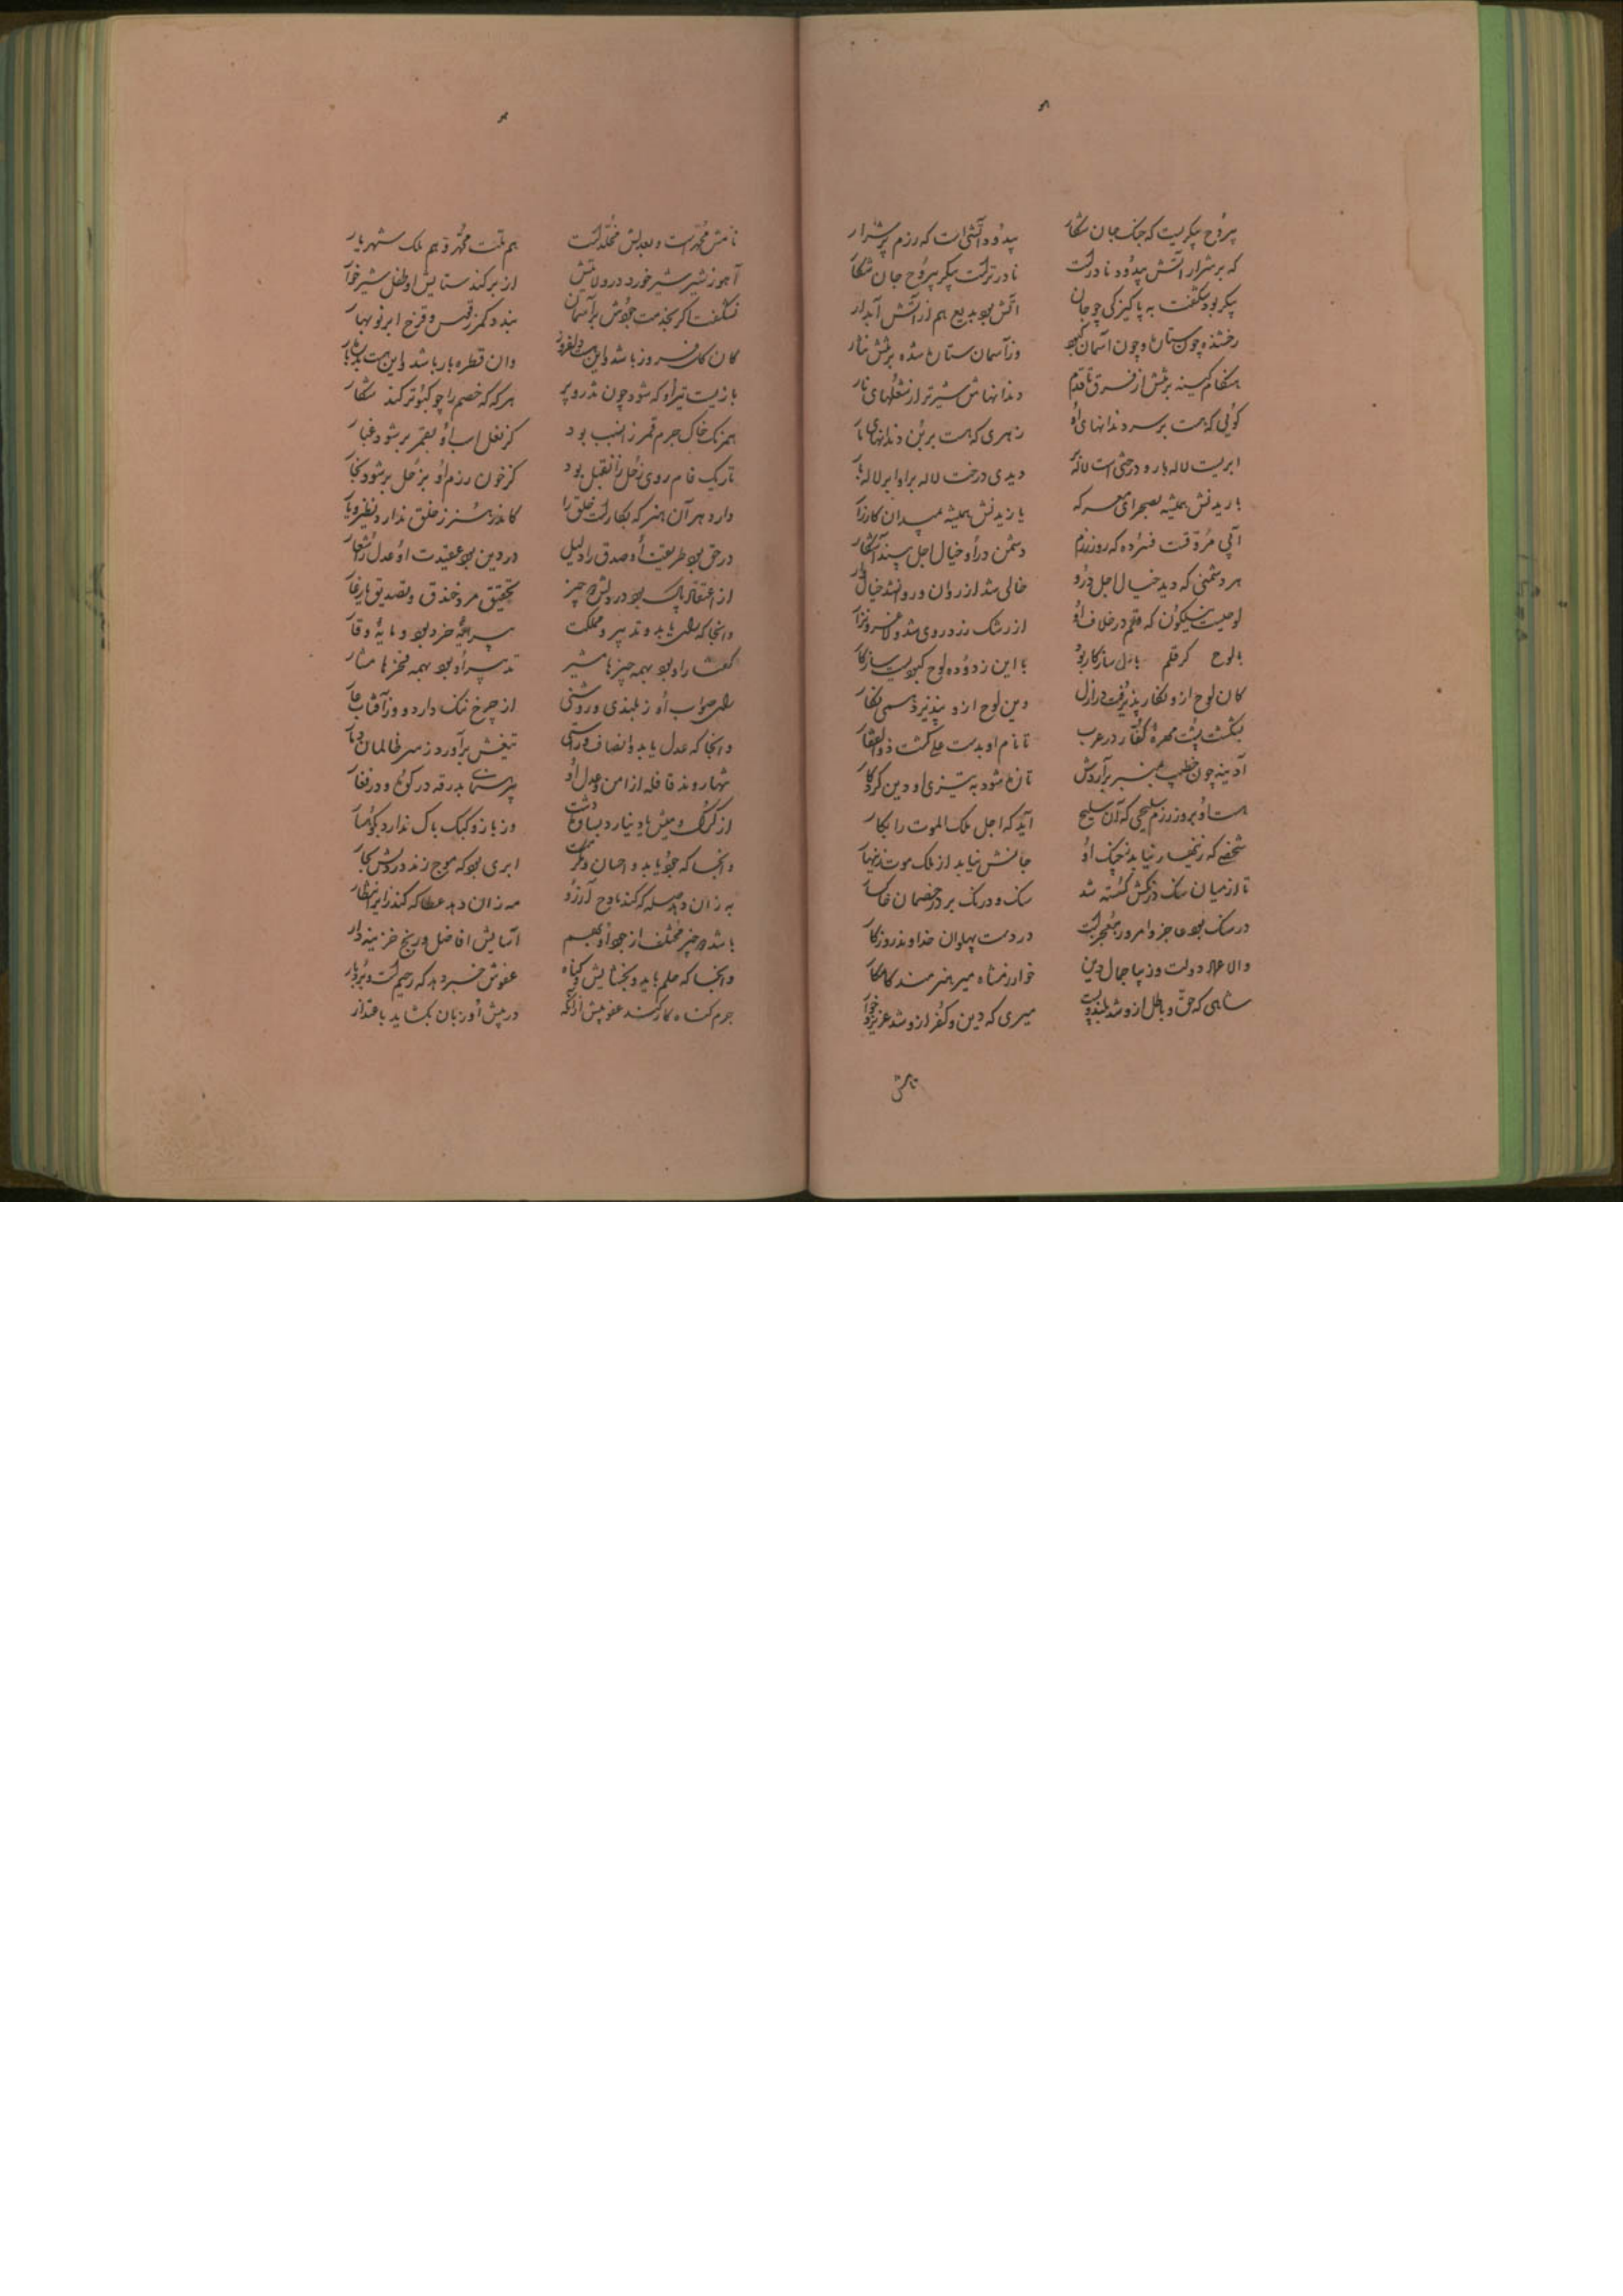 بیروح پیکریست که جنگ جان شکار
بیدود آتشی است که رزم پرشرار
که پرشرار آتش بیدود نادرست
نادرترست پیکر بیروح جان شکار
پیکر بود شگفت به پاکیزگی چو جان
آتش بود بدیع هم از آتش آبدار
رخشنده چون ستاره و چون آسمان کبود
وز آسمان ستاره شده برتنش نثار
هنگام کینه برتنش از فرق تا قدم
دندانهاش تیزتر از شعلهای نار
گوئی که هست بر سر دندانهای او
زهری که هست بربن دندانهای مار
ابریست لاله بار و درختی است لاله بر
دیدی درخت لاله بر و ابر لاله بار
باریدنش همیشه بصحرای معرکه
یازیدنش همیشه بمیدان کارزار
آبی مروقست فسرده که روز رزم
دشمن در او خیال اجل بیند آشکار
هر دشمنی که دید خیال اجل درو
خالی شد از روان و روانشد خیال وار
لوحیست نیلگون که قلم در خلاف او
از رشک زرد روی شد و لاغر و نزار
با لوح گر قلم بازل سازگار بود
با این زدوده لوح کبود است سازگار
کان لوح ازو نگار پذیرفت در ازل
وین لوح ازو پذیرد همی نگار
بشکست پشت مهره کفار در عرب
تا نام او بدست علی گشت ذوالفقار
آدینه چون خطیب بمنبر برآردش
تازه شود به تیزی او دین کردگار
هست او بروز رزم سلیحی که آن سلیح
آید که اجل ملک الموت را بکار
شخصی که زینهار نیابد ز جنگ او
جانش نیابد از ملک موت زینهار
تا از میان سنگ درنگش گسسته شد
سنگ و درنگ برد ز خصمان خاکسار
در سنگ بود عاجز و امروز معجز است
در دست پهلوان خداوند روزگار
والا علاء دولت و زیبا جمال دین
خوارزمشاه میر هنرمند کامکار
شاهی که حق و باطل ازو شد بلند و پست
میری که دین و کفر ازو شد عزیز و خوار
نامش
نامش محمدست و بعدلش مخلدست
هم ملت محمد و هم ملک شهریار
آهو ز شیر شیر خورد در ولایتش
از بر کند ستایش او طفل شیرخوار
نشگفت اگر بخدمت جودش بر آسمان
بندد کمر ز قوس و قزح ابر نوبهار
وان قطره بار باشد و این هست بدره بار
بازیست تیر او که شود چون تذرو پر
هر که که خصم را چو کبوتر کند شکار
همرنگ خاک جرم قمر زانسبب بود
کز نعل اسب او بقمر بر شود غبار
تاریک فام روی زحل زانقبل بود
کز خون رزم او بزحل بر شود بخار
دارد هر آن هنر که بکارست خلق را
کاندر هنر ز خلق ندارد نظیر و یار
در حق بود طریقت او صدق را دلیل
در دین بود عقیدت او عدل را شعار
از اعتقاد پاک بود در دلش دو چیز
تحقیق مرد خندق و تصدیق یار غار
وانجا که رای باید و تدبیر و مملکت
پیرایه خرد بود و مایه وقار
گفتار او بود بهمه چیزها مشیر
تدبیر او بود بهمه فخرها مشار
رای صواب او ز بلندی و روشنی
از چرخ ننگ دارد و وز آفتاب عار
وانجا که عدل باید و انصاف و راستی
تیغش برآورد ز سر ظالمان دمار
تنها روند قافله از امن و عدل او
بی رهنما و بدرقه در کوه و در قفار
از گرگ و میش یاد نیارد بساده دشت
وز باز و کبک باک ندارد بکوهسار
وانجا که جود باید و احسان و مکرمت
ابری بود که موج زند در دلش بحار
به زان دهد صله که کند مادح آرزو
مه زان دهد عطا که کند زایر انتظار
باشد دو چیز مختلف از جود او بهم
آسایش افاضل و رنج خزینه دار
وانجا که حلم باید و بخشایش و گناه
عفوش خبر دهد که رحیم است و بردبار
جرم گناه کار کند عفو بیش از آنکه
در پیش او زبان بگشاید باعتذار